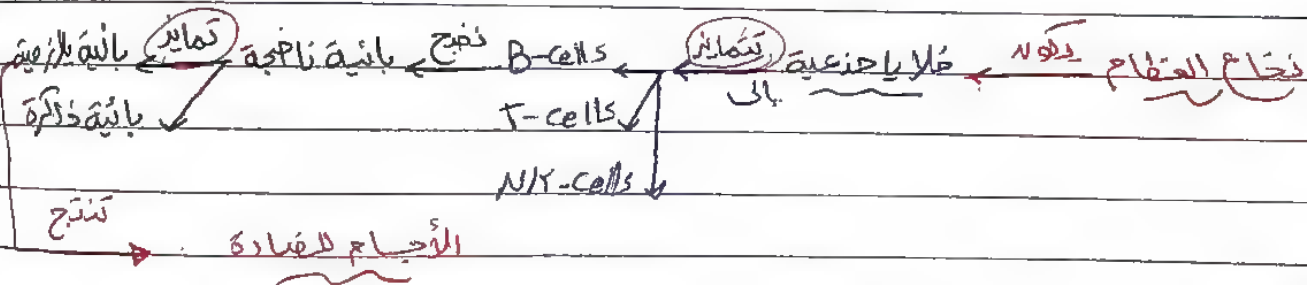 نخاع العظام يكون خلايا جذعية تتمايز إلى B-cells نضج بائية ناضجة تمايز بائية بلازمية
T-cells بائية ذاكرة
NK-cells
تنتج
الأجسام المضادة